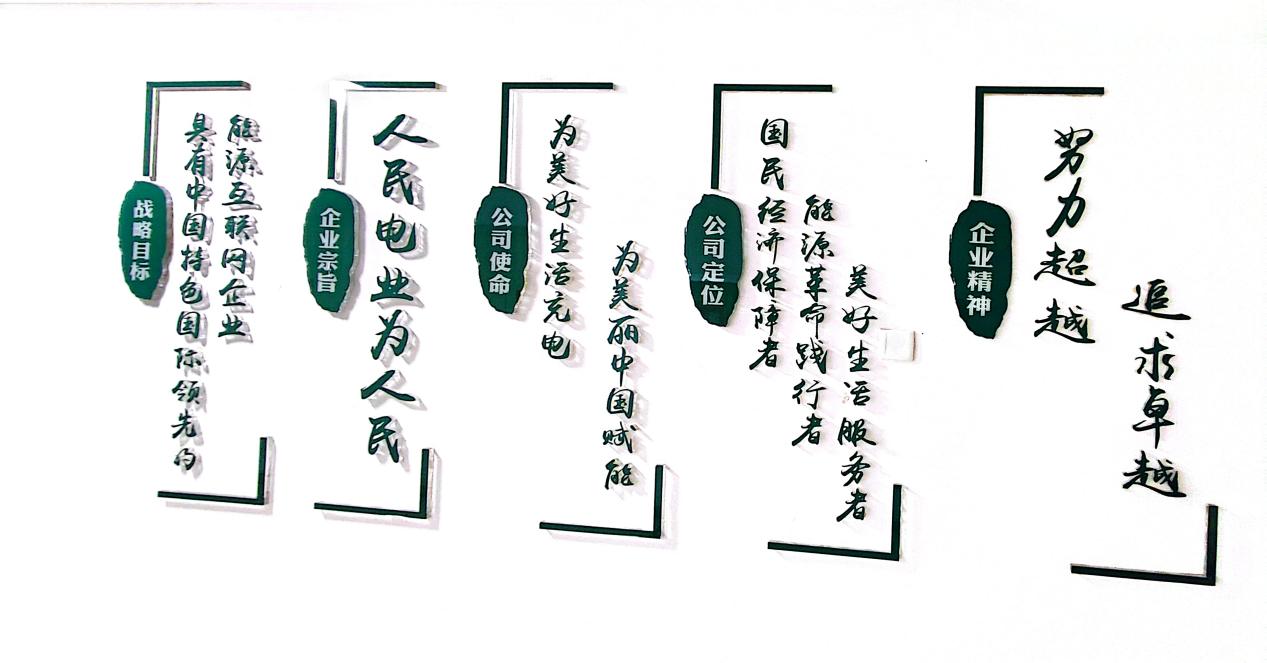 战略目标
具有中国特色国际领先的
能源互联网企业
企业宗旨
人民电业为人民
公司使命
为美好生活充电
为美丽中国赋能
公司定位
国民经济保障者
能源革命践行者
美好生活服务者
企业精神
努力超越
追求卓越